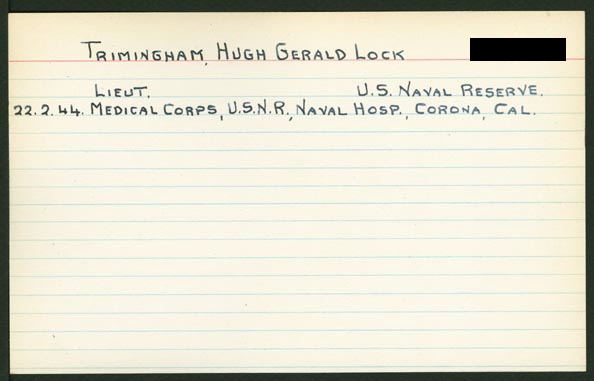 TRIMINGHAM, HUGH GERALD LOCK
LIEUT. U.S. NAVAL RESERVE.
22.2.44. MEDICAL CORPS, U.S.N.R., NAVAL HOSP., CORONA, CAL.